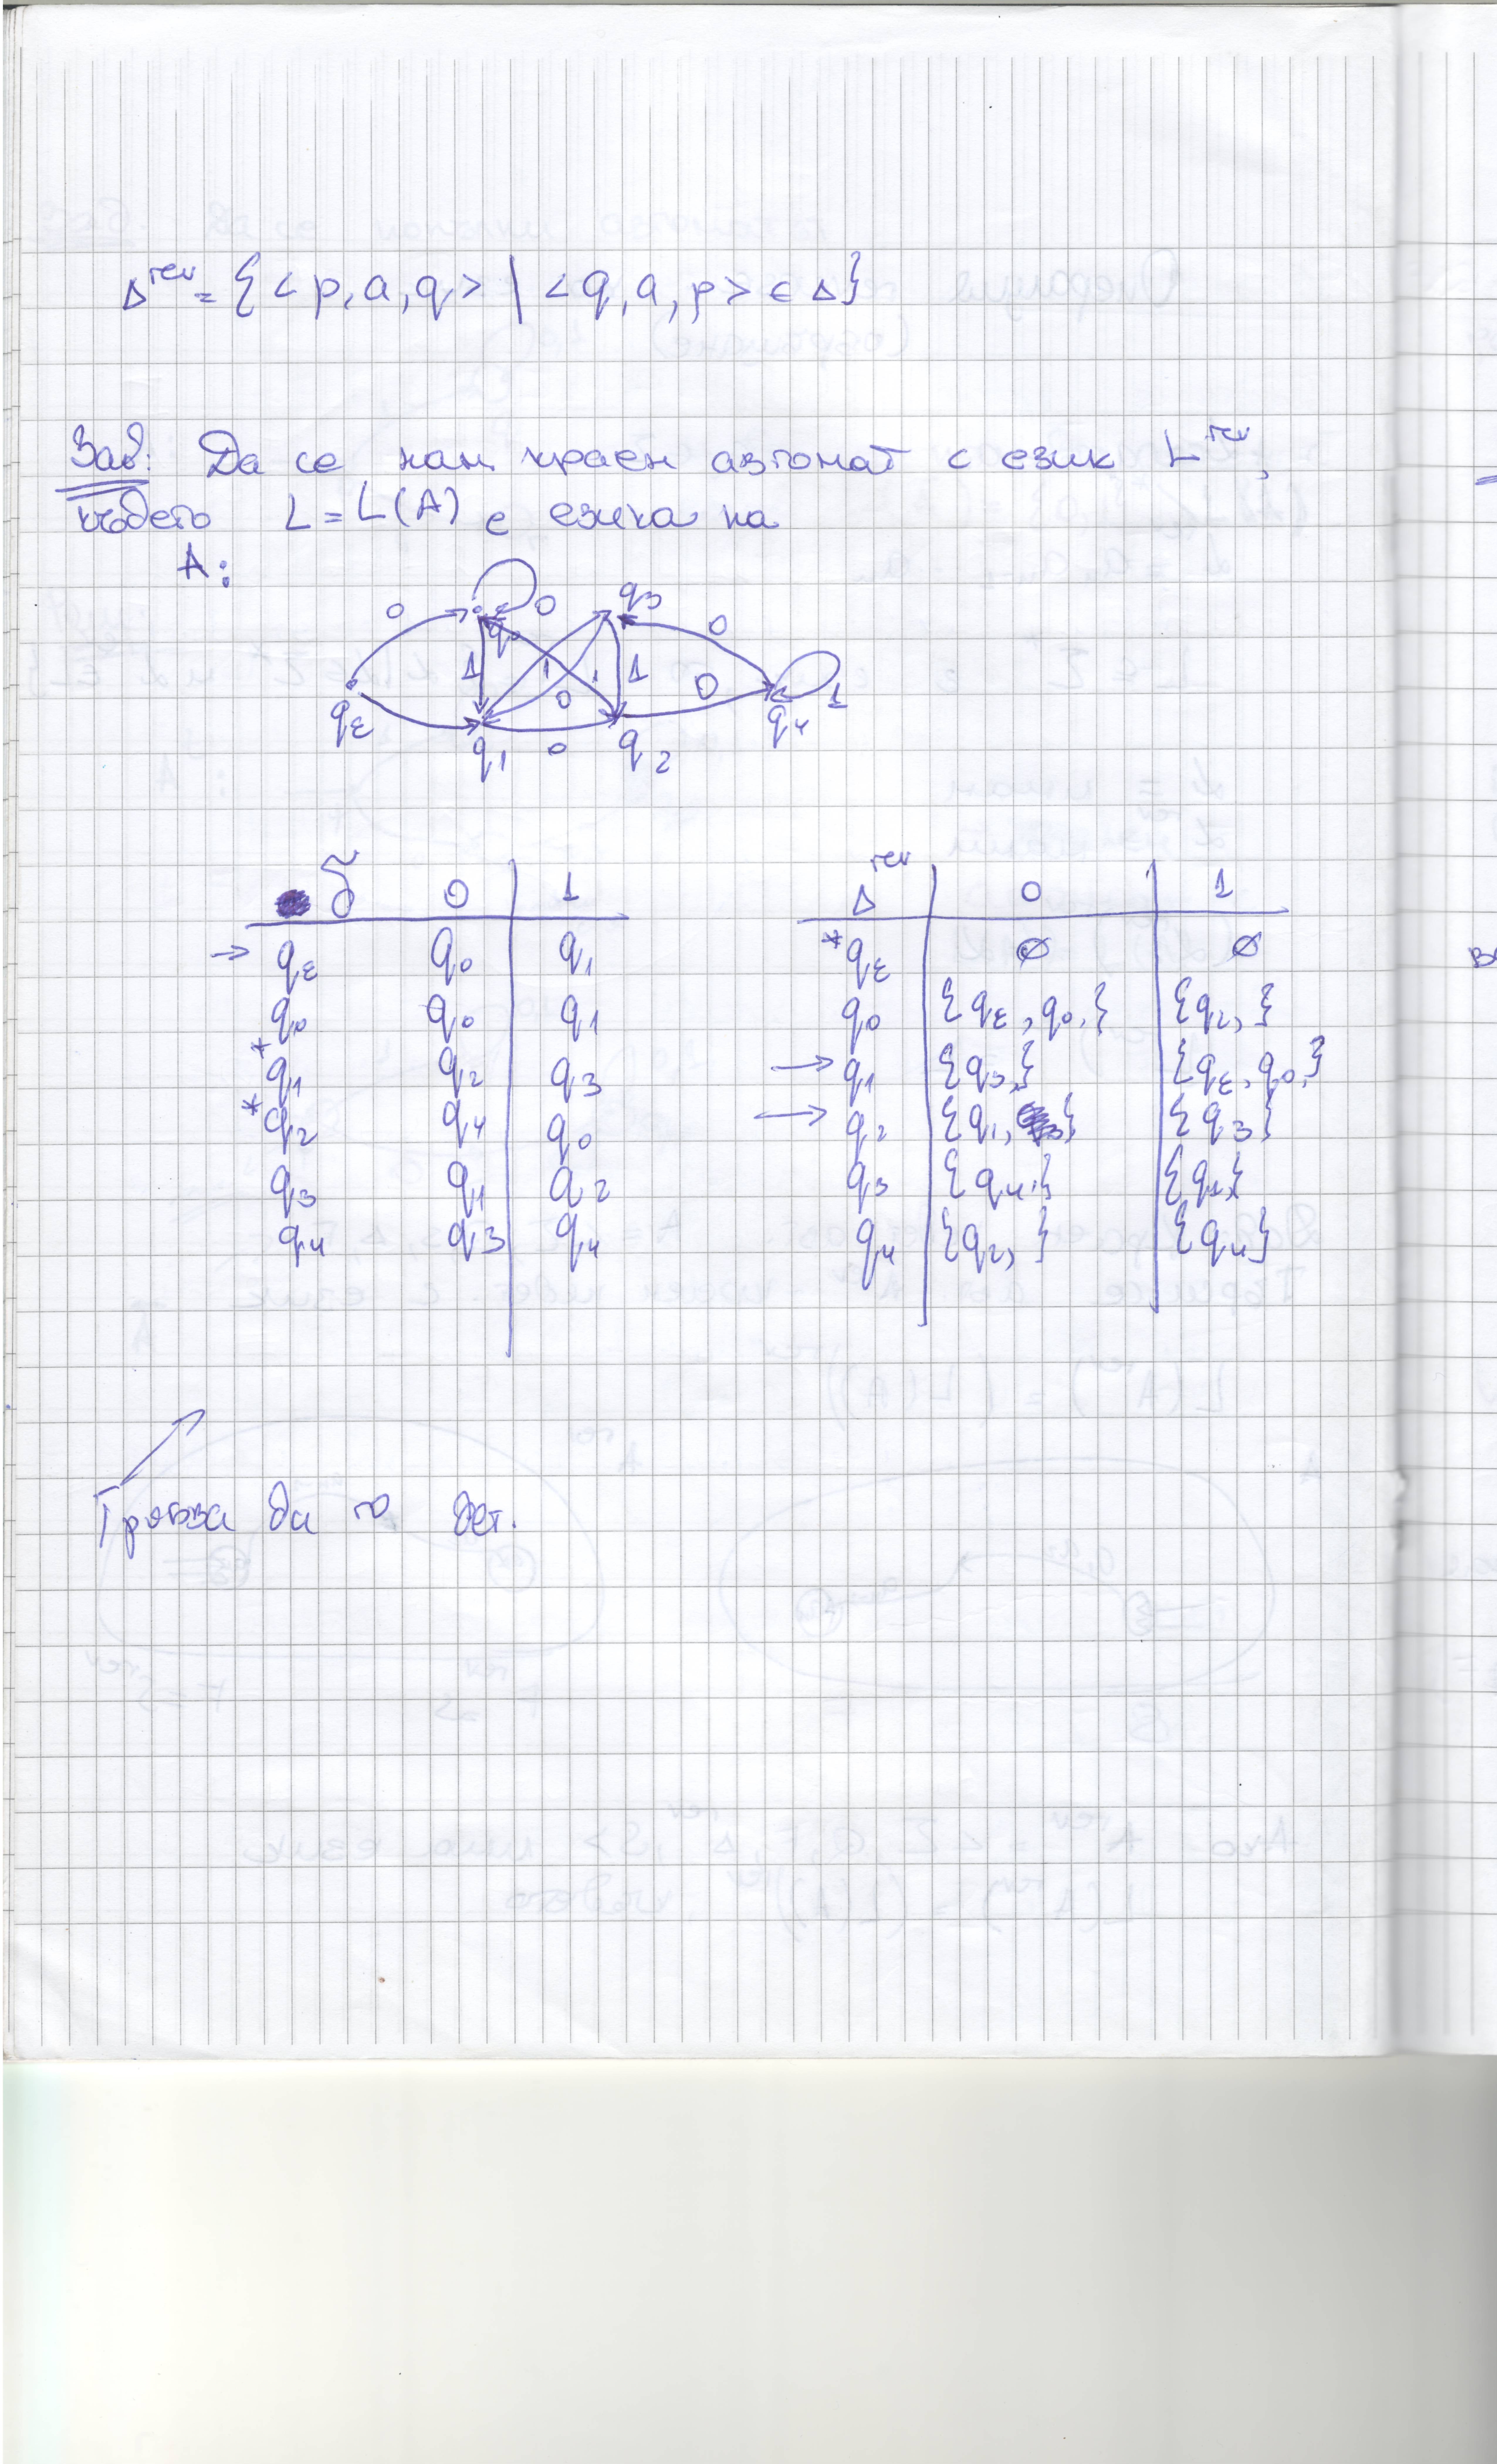 Δ^rev = { <p,a,q> | <q,a,p> ∈ Δ }
Зад: Да се нам. краен автомат с език L^rev,
където L = L(A) е езика на
A:
0 0 q3 0
q0 1 1 1 0 0 1
qε q1 0 q2 q4
δ 0 1
→ qε q0 q1
q0 q0 q1
* q1 q2 q3
* q2 q4 q0
q3 q1 q2
q4 q3 q4
Δ^rev 0 1
* qε ∅ ∅
q0 {qε, q0,} {q2,}
→ q1 {q3,} {qε, q0,}
→ q2 {q1, } {q3}
q3 {q4,} {q1,}
q4 {q2, } {q4}
Трябва да го дет.